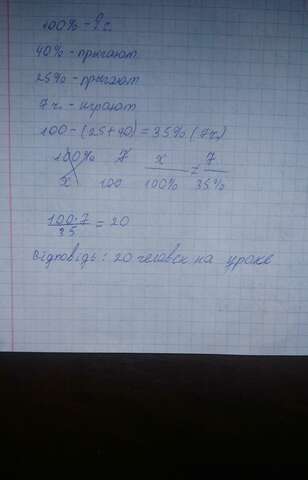 100% - ? ч.
40% - прыгают
25% - прыгают
7 ч. - играют
100 - (25+40) = 35% (7ч)
100% 7 x/100% = 7/35%
x 100
100·7/35 = 20
Відповідь: 20 человек на уроке